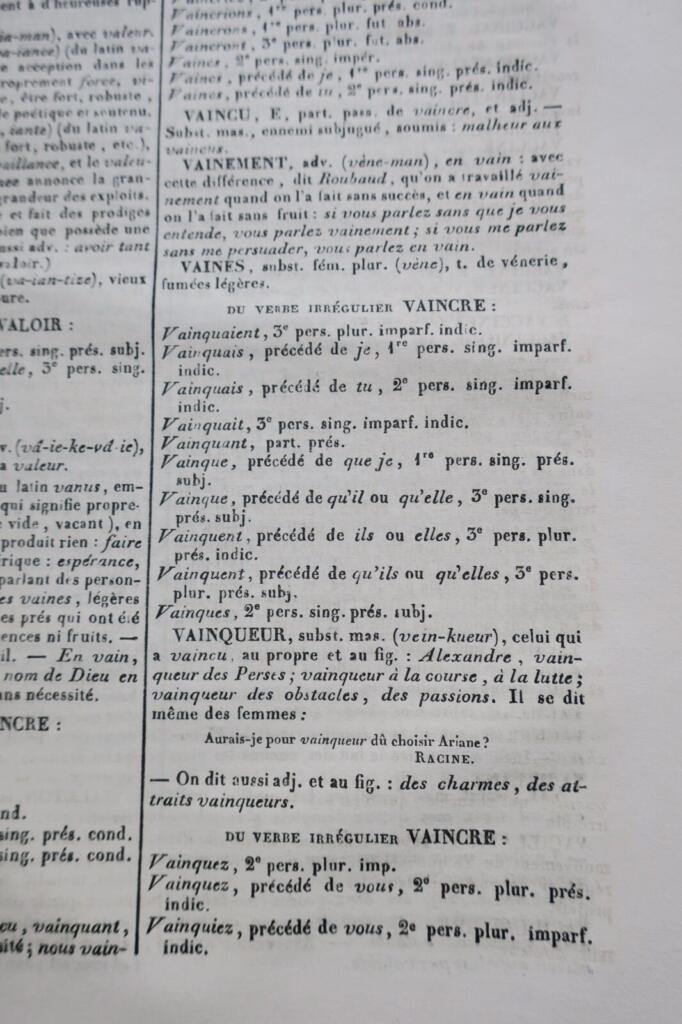 ent à d'heureuses
ia-man), avec valeur.
(du latin va-
acception dans les
roprement force,
, être fort, robuste,
le poétique et soutenu.
, iante) (du latin va-
fort, robuste, etc.).
aillance, et le valeu-
annonce la gran-
grandeur des exploits.
et fait des prodiges
bien que possède une
ussi adv. : avoir tant
(va-ian-tize), vieux
ure.
VALOIR :
ers. sing. prés. subj.
elle, 3e pers. sing.
j.
v. (vá-ie-ke-vá-ie),
a valeur.
u latin vanus, em-
qui signifie propre-
vide, vacant), en
produit rien : faire
rique : espérance,
parlant des person-
es vaines, légères
es prés qui ont été
ences ni fruits. —
il. — En vain,
nom de Dieu en
ns nécessité.
NCRE :
nd.
sing. prés. cond.
sing. prés. cond.
cu, vainquant,
sité; nous vain-
Vaincrions, 1re pers. plur. prés. cond.
Vaincrons, 1re pers. plur. fut. abs.
Vaincront, 3e pers. plur. fut. abs.
Vaincs, 2e pers. sing. impér.
Vaincs, précédé de je, 1re pers. sing. prés. indic.
Vaincs, précédé de tu, 2e pers. sing. prés. indic.
VAINCU, E, part. pass. de vaincre, et adj. —
Subst. mas., ennemi subjugué, soumis : malheur aux
vaincus.
VAINEMENT, adv. (vène-man), en vain : avec
cette différence, dit Roubaud, qu'on a travaillé vai-
nement quand on l'a fait sans succès, et en vain quand
on l'a fait sans fruit : si vous parlez sans que je vous
entende, vous parlez vainement; si vous me parlez
sans me persuader, vous parlez en vain.
VAINES, subst. fém. plur. (vène), t. de vénerie,
fumées légères.
DU VERBE IRRÉGULIER VAINCRE :
Vainquaient, 3e pers. plur. imparf. indic.
Vainquais, précédé de je, 1re pers. sing. imparf.
indic.
Vainquais, précédé de tu, 2e pers. sing. imparf.
indic.
Vainquait, 3e pers. sing. imparf. indic.
Vainquant, part. prés.
Vainque, précédé de que je, 1re pers. sing. prés.
subj.
Vainque, précédé de qu'il ou qu'elle, 3e pers. sing.
prés. subj.
Vainquent, précédé de ils ou elles, 3e pers. plur.
prés. indic.
Vainquent, précédé de qu'ils ou qu'elles, 3e pers.
plur. prés. subj.
Vainques, 2e pers. sing. prés. subj.
VAINQUEUR, subst. mas. (vein-kueur), celui qui
a vaincu, au propre et au fig. : Alexandre, vain-
queur des Perses; vainqueur à la course, à la lutte;
vainqueur des obstacles, des passions. Il se dit
même des femmes :
Aurais-je pour vainqueur dû choisir Ariane?
RACINE.
— On dit aussi adj. et au fig. : des charmes, des at-
traits vainqueurs.
DU VERBE IRRÉGULIER VAINCRE :
Vainquez, 2e pers. plur. imp.
Vainquez, précédé de vous, 2e pers. plur. prés.
indic.
Vainquiez, précédé de vous, 2e pers. plur. imparf.
indic.